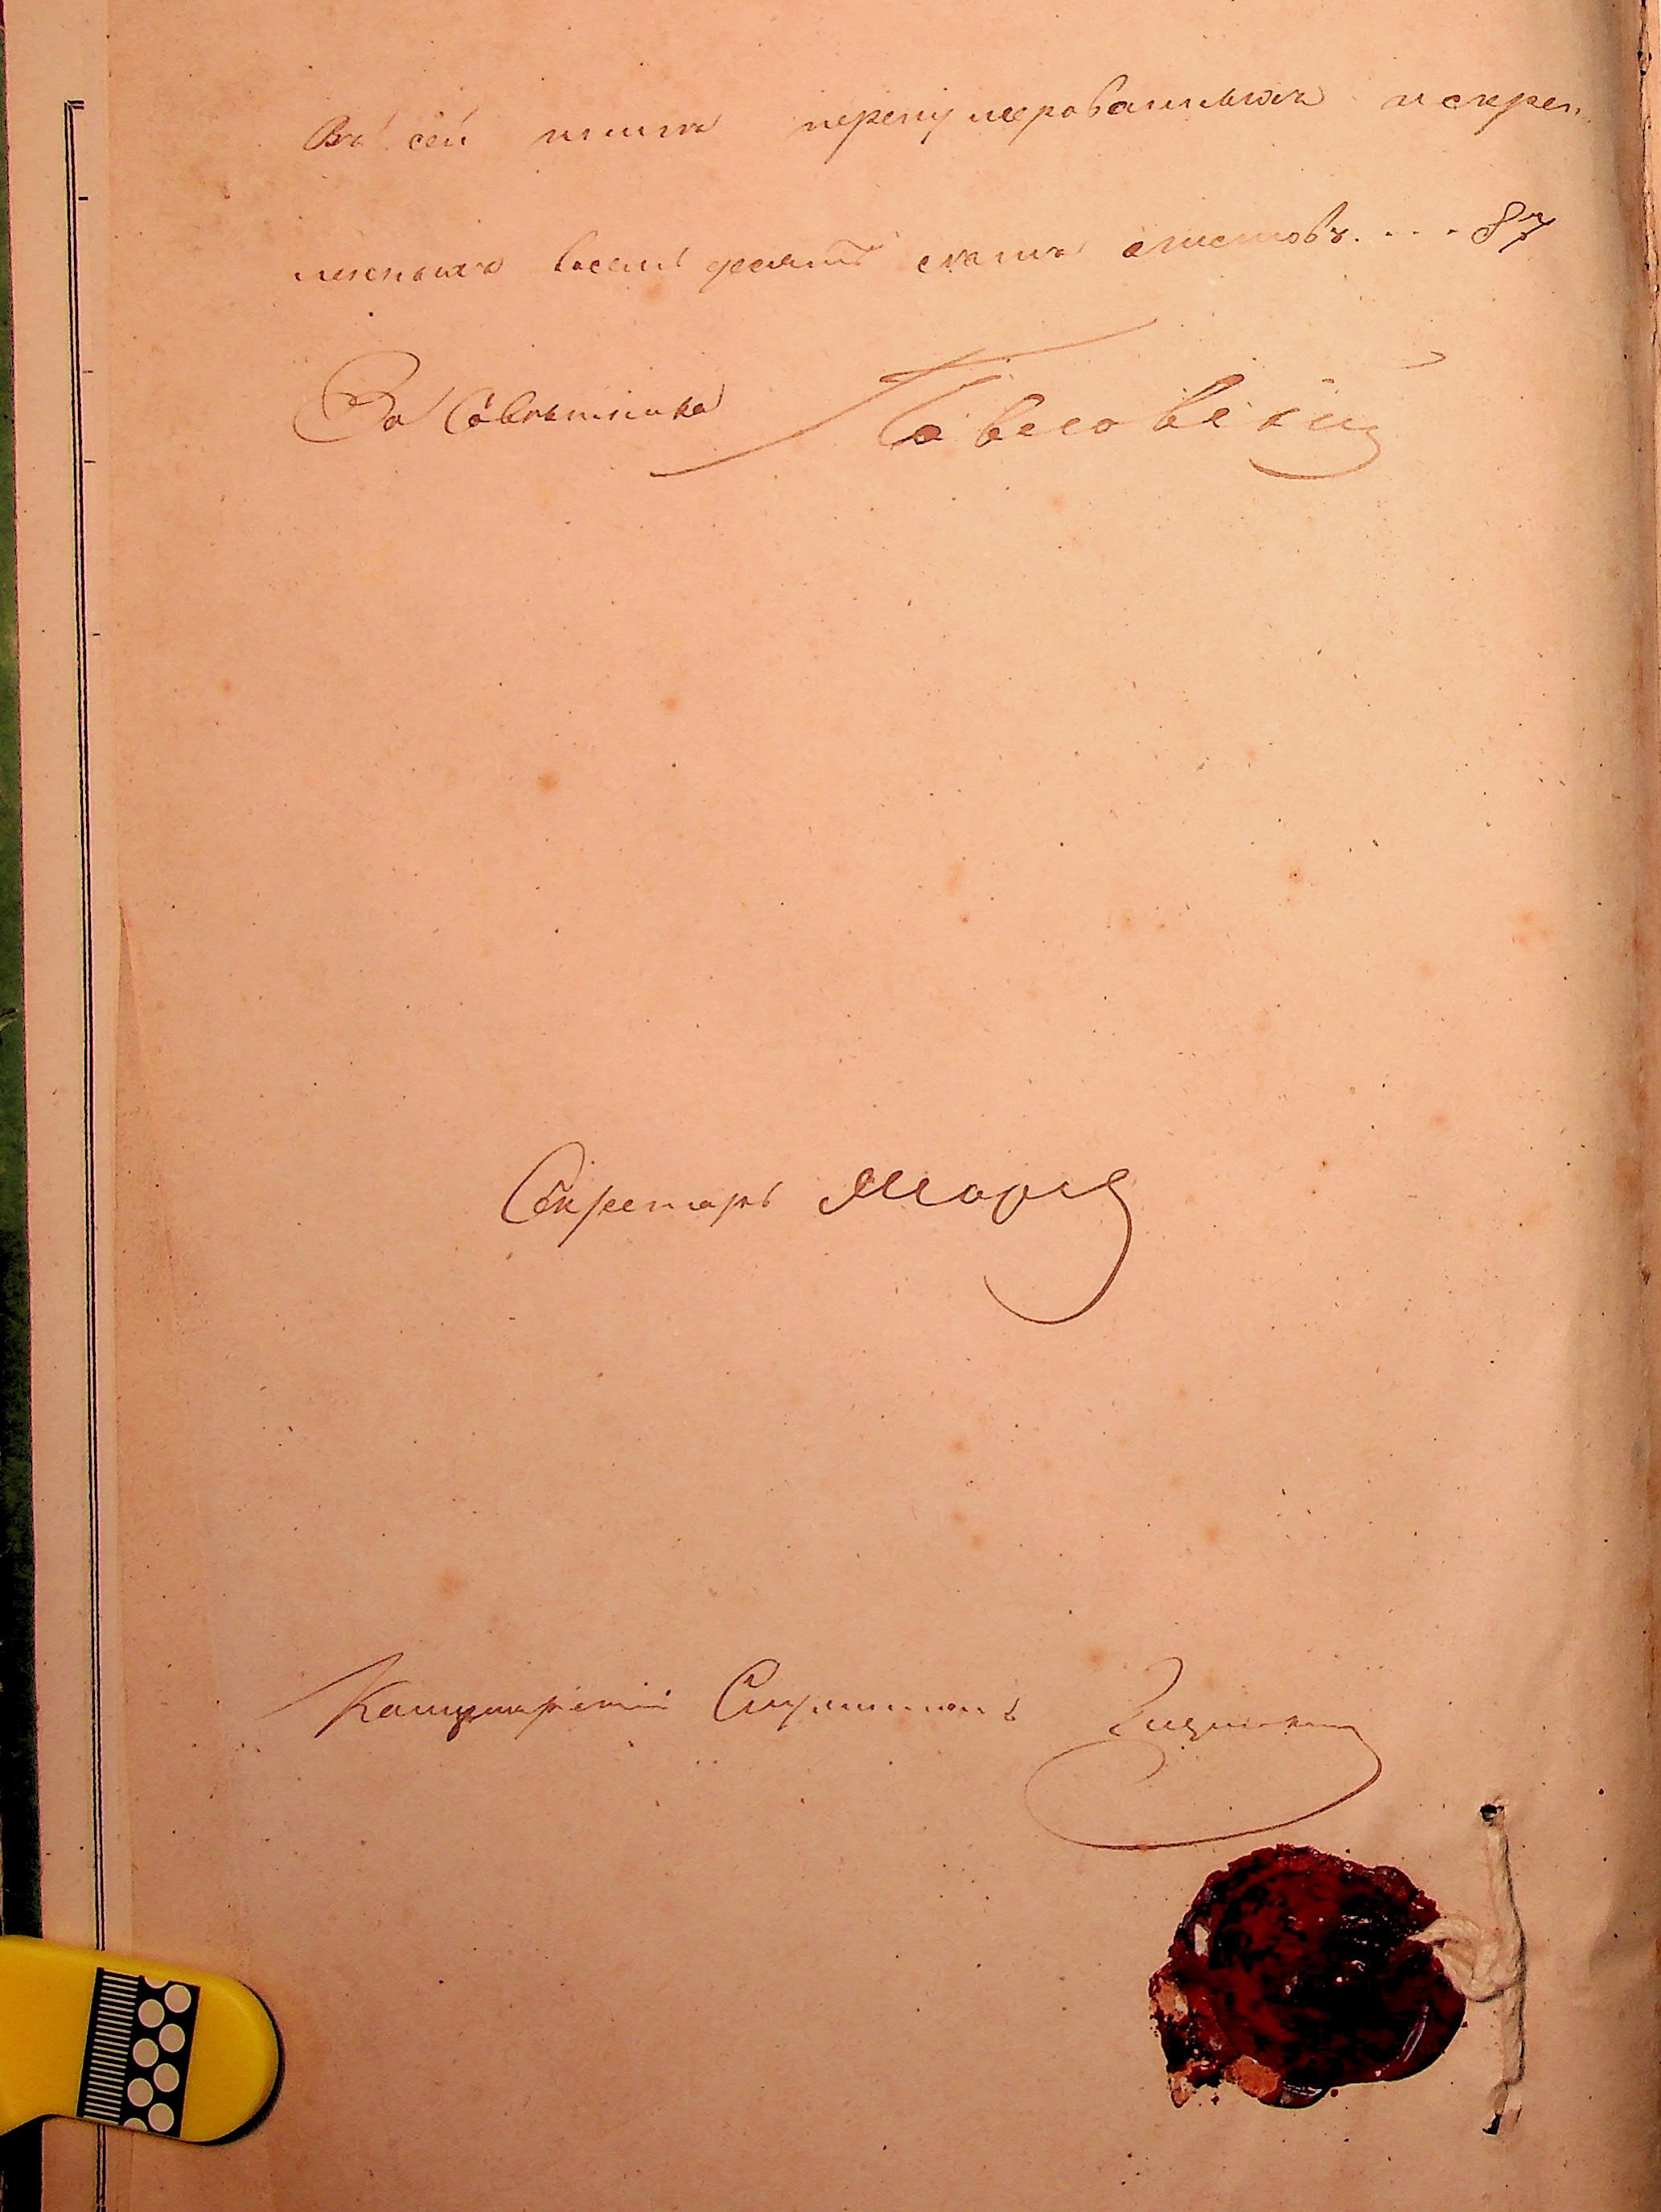 Въ сей книгѣ перенумерованныхъ и скреп-
ленныхъ восемьдесятъ семь листовъ. . . . 87
За Совѣтника
Секретарь
Канцелярскій Служитель